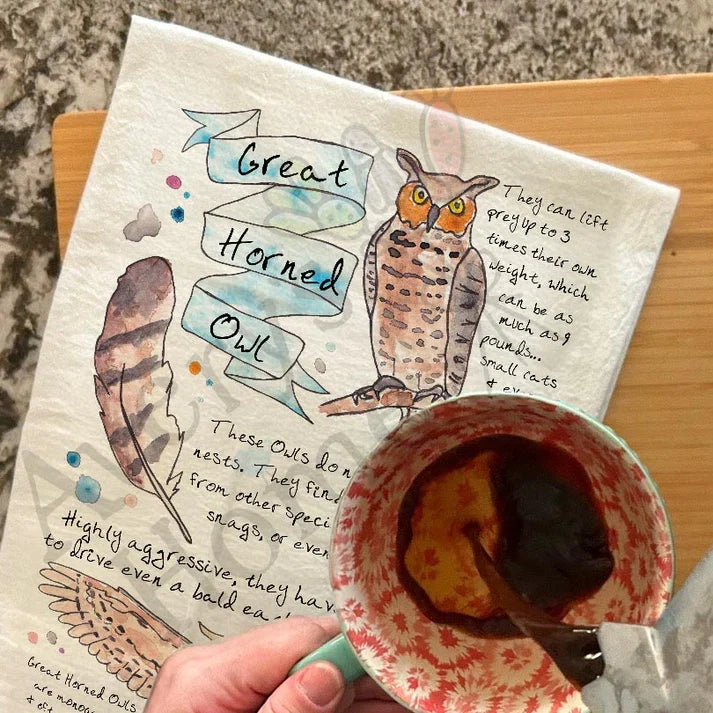 Great
Horned
Owl
They can lift
prey up to 3
times their own
weight, which
can be as
much as 9
pounds...
small cats
These Owls do
nests. They find
from other
snags, or even
Highly aggressive, they
to drive even a bald
Great Horned Owls
are